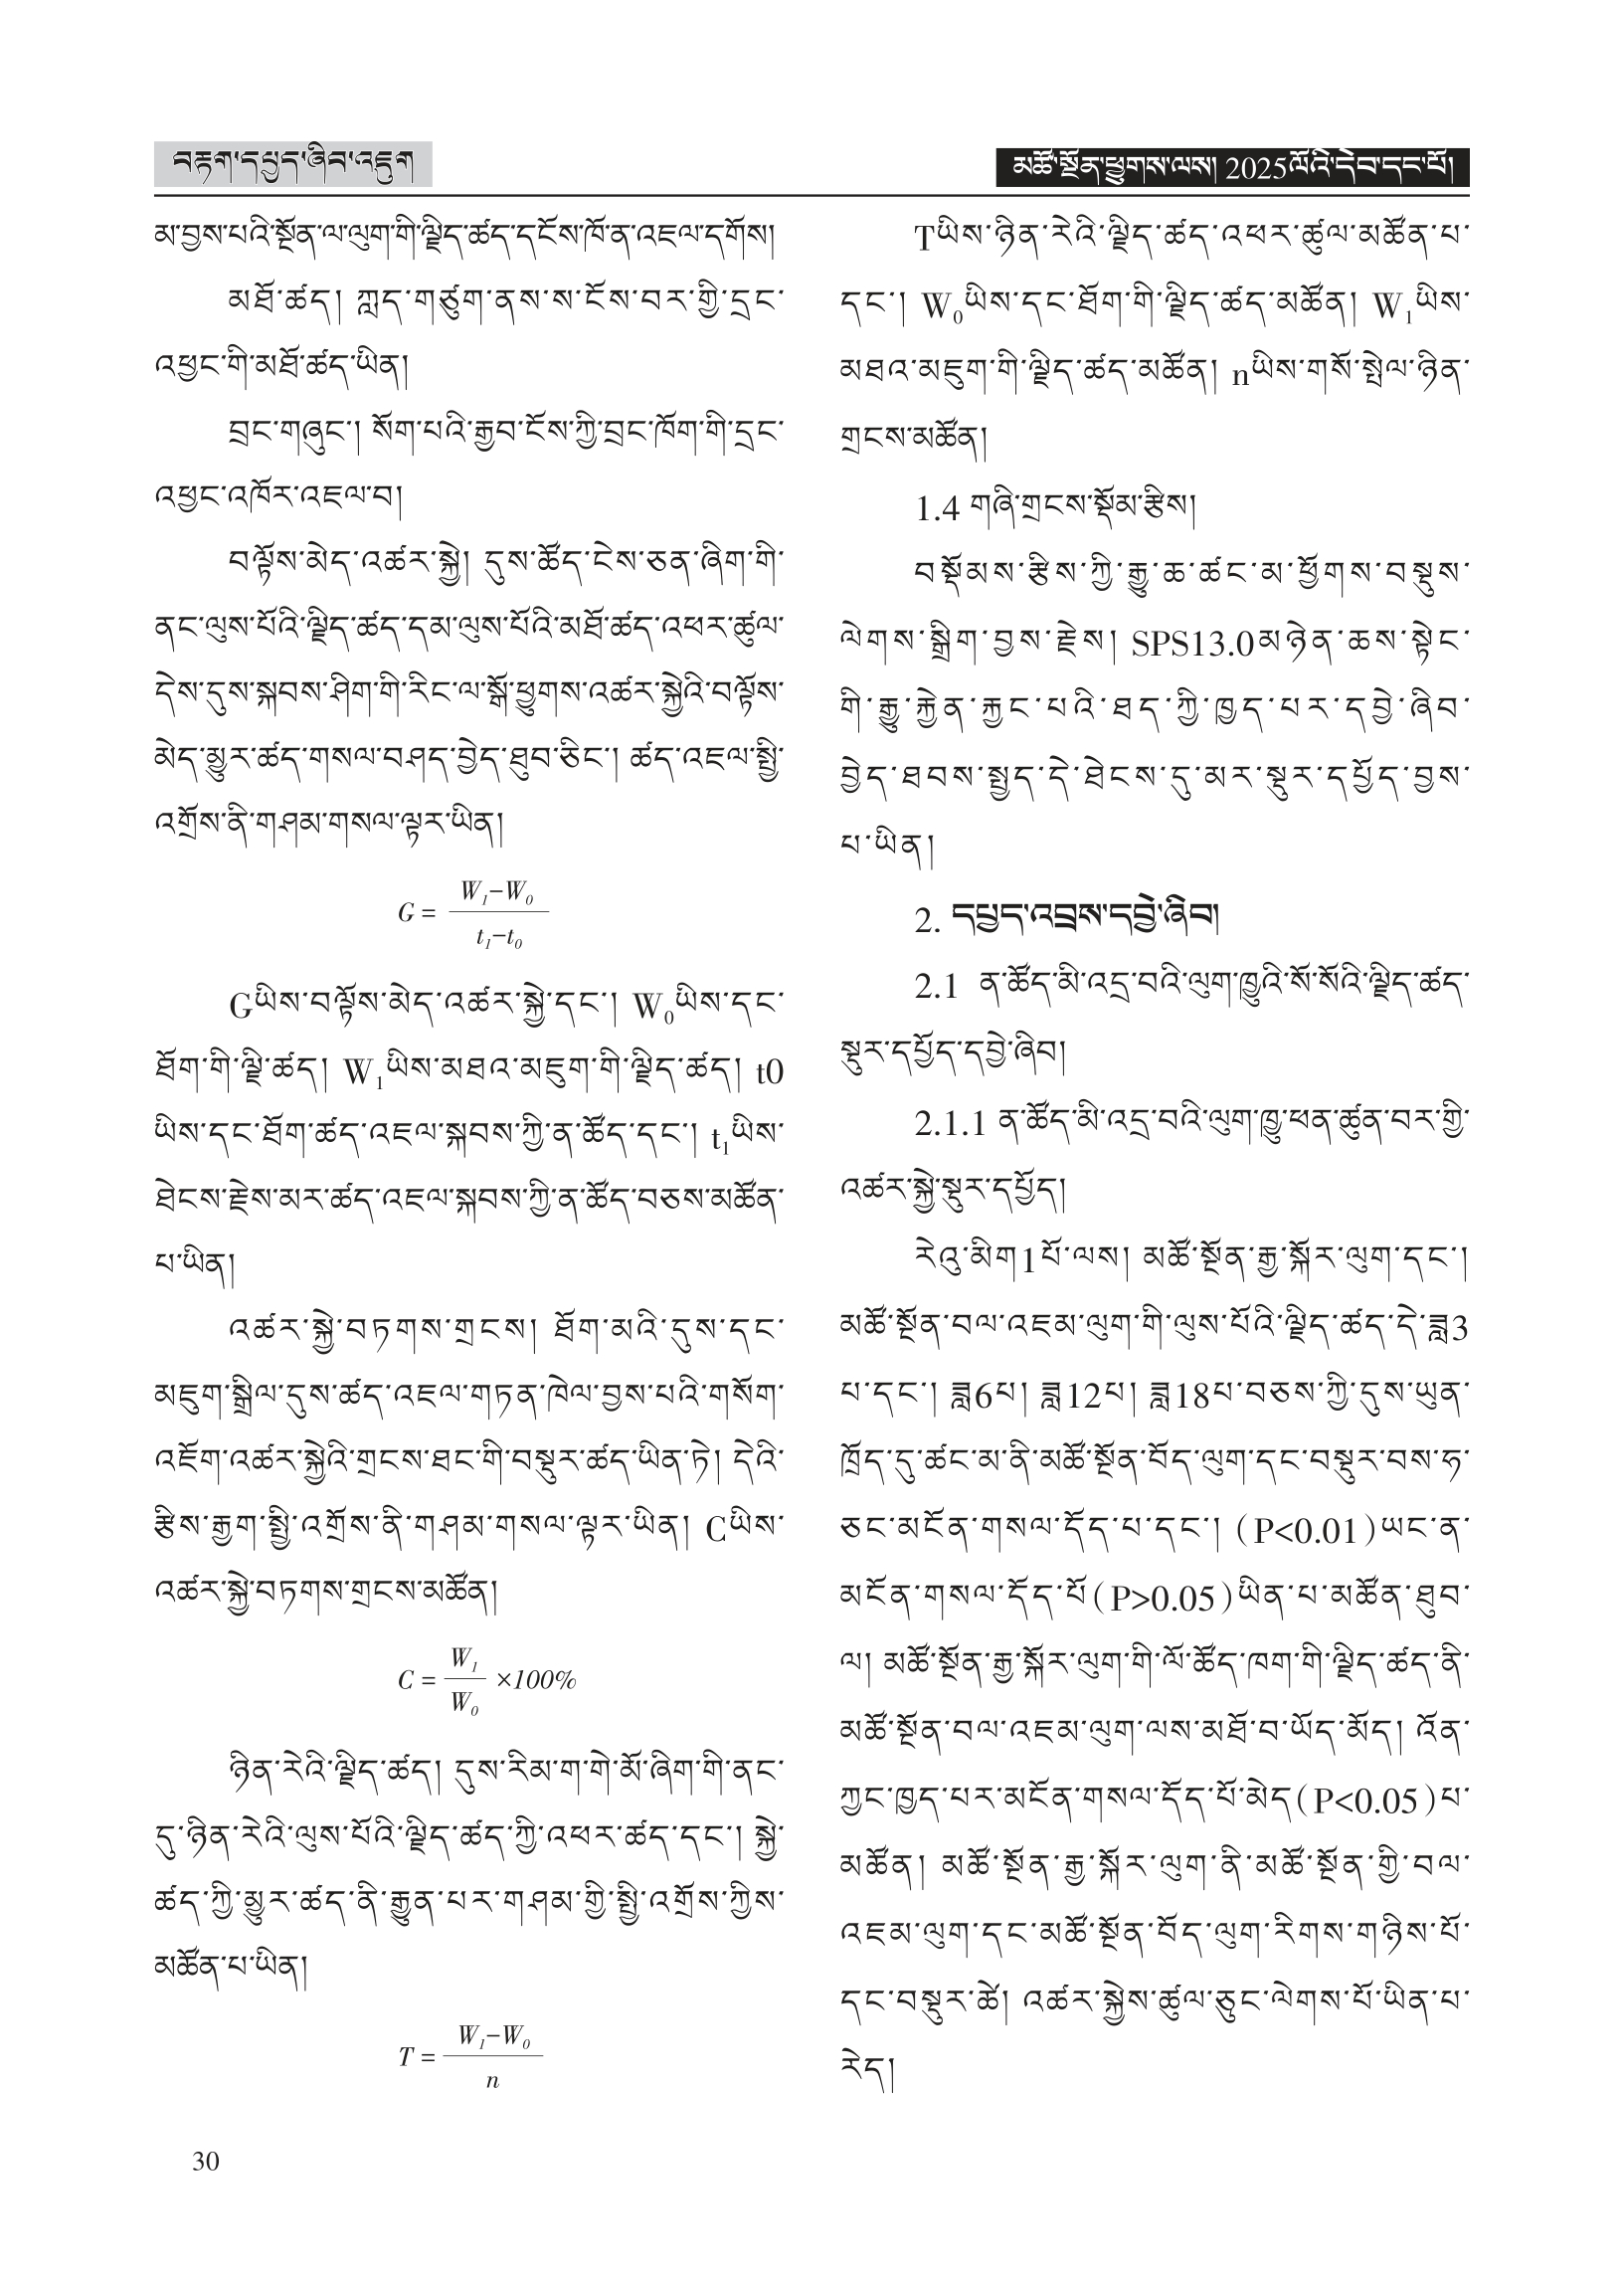 བརྟག་དཔྱད་ཞིབ་འཇུག
མཚོ་སྔོན་ཕྱུགས་ལས། 2025ལོའི་དེབ་དང་པོ།
མ་བྱས་པའི་སྔོན་ལ་ལུག་གི་ལྗིད་ཚད་དངོས་ཁོ་ན་འཇལ་དགོས།
མཐོ་ཚད། ཀླད་གཙུག་ནས་ས་ངོས་བར་གྱི་དྲང་
འཕྱང་གི་མཐོ་ཚད་ཡིན།
བྲང་གཞུང་། སོག་པའི་རྒྱབ་ངོས་ཀྱི་བྲང་ཁོག་གི་དྲང་
འཕྱང་འཁོར་འཇལ་བ།
བལྟོས་མེད་འཚར་སྐྱེ། དུས་ཚོད་ངེས་ཅན་ཞིག་གི་
ནང་ལུས་པོའི་ལྗིད་ཚད་དམ་ལུས་པོའི་མཐོ་ཚད་འཕར་ཚུལ་
དེས་དུས་སྐབས་ཤིག་གི་རིང་ལ་སྒོ་ཕྱུགས་འཚར་སྐྱེའི་བལྟོས་
མེད་མྱུར་ཚད་གསལ་བཤད་བྱེད་ཐུབ་ཅིང་། ཚད་འཇལ་སྤྱི་
འགྲོས་ནི་གཤམ་གསལ་ལྟར་ཡིན།
G = (W₁−W₀)/(t₁−t₀)
Gཡིས་བལྟོས་མེད་འཚར་སྐྱེ་དང་། W₀ཡིས་དང་
ཐོག་གི་ལྗི་ཚད། W₁ཡིས་མཐའ་མཇུག་གི་ལྗིད་ཚད། t0
ཡིས་དང་ཐོག་ཚད་འཇལ་སྐབས་ཀྱི་ན་ཚོད་དང་། t₁ཡིས་
ཐེངས་རྗེས་མར་ཚད་འཇལ་སྐབས་ཀྱི་ན་ཚོད་བཅས་མཚོན་
པ་ཡིན།
འཚར་སྐྱེ་བཏགས་གྲངས། ཐོག་མའི་དུས་དང་
མཇུག་སྒྲིལ་དུས་ཚད་འཇལ་གཏན་ཁེལ་བྱས་པའི་གསོག་
འཇོག་འཚར་སྐྱེའི་གྲངས་ཐང་གི་བསྡུར་ཚད་ཡིན་ཏེ། དེའི་
རྩིས་རྒྱག་སྤྱི་འགྲོས་ནི་གཤམ་གསལ་ལྟར་ཡིན། Cཡིས་
འཚར་སྐྱེ་བཏགས་གྲངས་མཚོན།
C = W₁/W₀ ×100%
ཉིན་རེའི་ལྗིད་ཚད། དུས་རིམ་ག་གེ་མོ་ཞིག་གི་ནང་
དུ་ཉིན་རེའི་ལུས་པོའི་ལྗིད་ཚད་ཀྱི་འཕར་ཚད་དང་། སྐྱེ་
ཚད་ཀྱི་མྱུར་ཚད་ནི་རྒྱུན་པར་གཤམ་གྱི་སྤྱི་འགྲོས་ཀྱིས་
མཚོན་པ་ཡིན།
T = (W₁−W₀)/n
Tཡིས་ཉིན་རེའི་ལྗིད་ཚད་འཕར་ཚུལ་མཚོན་པ་
དང་། W₀ཡིས་དང་ཐོག་གི་ལྗིད་ཚད་མཚོན། W₁ཡིས་
མཐའ་མཇུག་གི་ལྗིད་ཚད་མཚོན། nཡིས་གསོ་སྤེལ་ཉིན་
གྲངས་མཚོན།
1.4 གཞི་གྲངས་སྡོམ་རྩིས།
བསྡོམས་རྩིས་ཀྱི་རྒྱུ་ཆ་ཚང་མ་ཕྱོགས་བསྡུས་
ལེགས་སྒྲིག་བྱས་རྗེས། SPS13.0མཉེན་ཆས་སྟེང་
གི་རྒྱུ་རྐྱེན་རྐྱང་པའི་ཐད་ཀྱི་ཁྱད་པར་དབྱེ་ཞིབ་
བྱེད་ཐབས་སྤྱད་དེ་ཐེངས་དུ་མར་སྡུར་དཔྱོད་བྱས་
པ་ཡིན།
2. དཔྱད་འབྲས་དབྱེ་ཞིབ།
2.1 ན་ཚོད་མི་འདྲ་བའི་ལུག་ཁྱུའི་སོ་སོའི་ལྗིད་ཚད་
སྡུར་དཔྱོད་དབྱེ་ཞིབ།
2.1.1 ན་ཚོད་མི་འདྲ་བའི་ལུག་ཁྱུ་ཕན་ཚུན་བར་གྱི་
འཚར་སྐྱེ་སྡུར་དཔྱོད།
རེའུ་མིག1པོ་ལས། མཚོ་སྔོན་རྒྱ་སྐོར་ལུག་དང་།
མཚོ་སྔོན་བལ་འཇམ་ལུག་གི་ལུས་པོའི་ལྗིད་ཚད་དེ་ཟླ3
པ་དང་། ཟླ6པ། ཟླ12པ། ཟླ18པ་བཅས་ཀྱི་དུས་ཡུན་
ཁྲོད་དུ་ཚང་མ་ནི་མཚོ་སྔོན་བོད་ལུག་དང་བསྡུར་བས་ཧ་
ཅང་མངོན་གསལ་དོད་པ་དང་། (P<0.01)ཡང་ན་
མངོན་གསལ་དོད་པོ(P>0.05)ཡིན་པ་མཚོན་ཐུབ་
ལ། མཚོ་སྔོན་རྒྱ་སྐོར་ལུག་གི་ལོ་ཚོད་ཁག་གི་ལྗིད་ཚད་ནི་
མཚོ་སྔོན་བལ་འཇམ་ལུག་ལས་མཐོ་བ་ཡོད་མོད། འོན་
ཀྱང་ཁྱད་པར་མངོན་གསལ་དོད་པོ་མེད(P<0.05)པ་
མཚོན། མཚོ་སྔོན་རྒྱ་སྐོར་ལུག་ནི་མཚོ་སྔོན་གྱི་བལ་
འཇམ་ལུག་དང་མཚོ་སྔོན་བོད་ལུག་རིགས་གཉིས་པོ་
དང་བསྡུར་ཚེ། འཚར་སྐྱེས་ཚུལ་ཅུང་ལེགས་པོ་ཡིན་པ་
རེད།
30